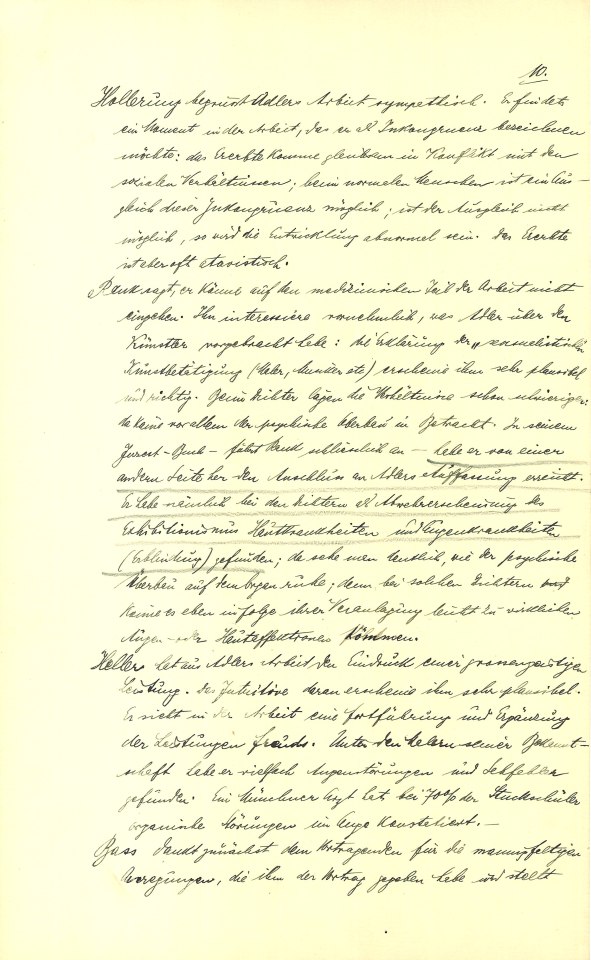 10.
Hollerung begrüsst Adlers Arbeit sympathisch. Er findet
ein Moment in der Arbeit, das er als Inkongruenz bezeichnen
möchte: das Ererbte komme gleichsam in Konflikt mit den
sozialen Verhältnissen; beim normalen Menschen ist ein Aus-
gleich dieser Inkongruenz möglich; ist der Ausgleich nicht
möglich, so wird die Entwicklung abnormal sein. Das Ererbte
ist aber oft atavistisch.
Rank sagt, er könne auf den medizinischen Teil der Arbeit nicht
eingehen. Ihn interessiere vornehmlich, was Adler über den
Künstler vorgebracht habe: die Erklärung der „sensualistischen
Kunstbetätigung (Maler, Musiker etc) erscheine ihm sehr plausibel
und richtig. Beim Dichter lägen die Verhältnisse schon schwieriger:
da käme vor allem der psychische Überbau in Betracht. In seinem
Inzest-Buch – führt Rank schliesslich an – habe er von einer
andern Seite her den Anschluss an Adlers Auffassung erreicht.
Er habe nämlich bei den Dichtern als Abwehrerscheinung des
Exhibitionismus Hautkrankheiten und Augenkrankheiten
(Erblindung) gefunden; da sehe man deutlich, wie der psychische
Überbau auf dem Organ ruhe; denn bei solchen Dichtern
käme es eben infolge ihrer Veranlagung leicht zu wirklichen
Augen- oder Hautaffektionen kommen.
Heller hat aus Adlers Arbeit den Eindruck einer grossangelegten
Leistung. Das Intuitive daran erscheine ihm sehr plausibel.
Er sieht in der Arbeit eine Fortführung und Ergänzung
der Leistungen Freuds. Unter den Malern seiner Bekannt-
schaft habe er vielfach Augenstörungen und Sehfehler
gefunden. Ein Münchner Arzt hat bei 70% der Stuckschüler
organische Störungen im Auge konstatiert. –
Bass dankt zunächst dem Vortragenden für die mannigfaltigen
Anregungen, die ihm der Vortrag gegeben habe und stellt